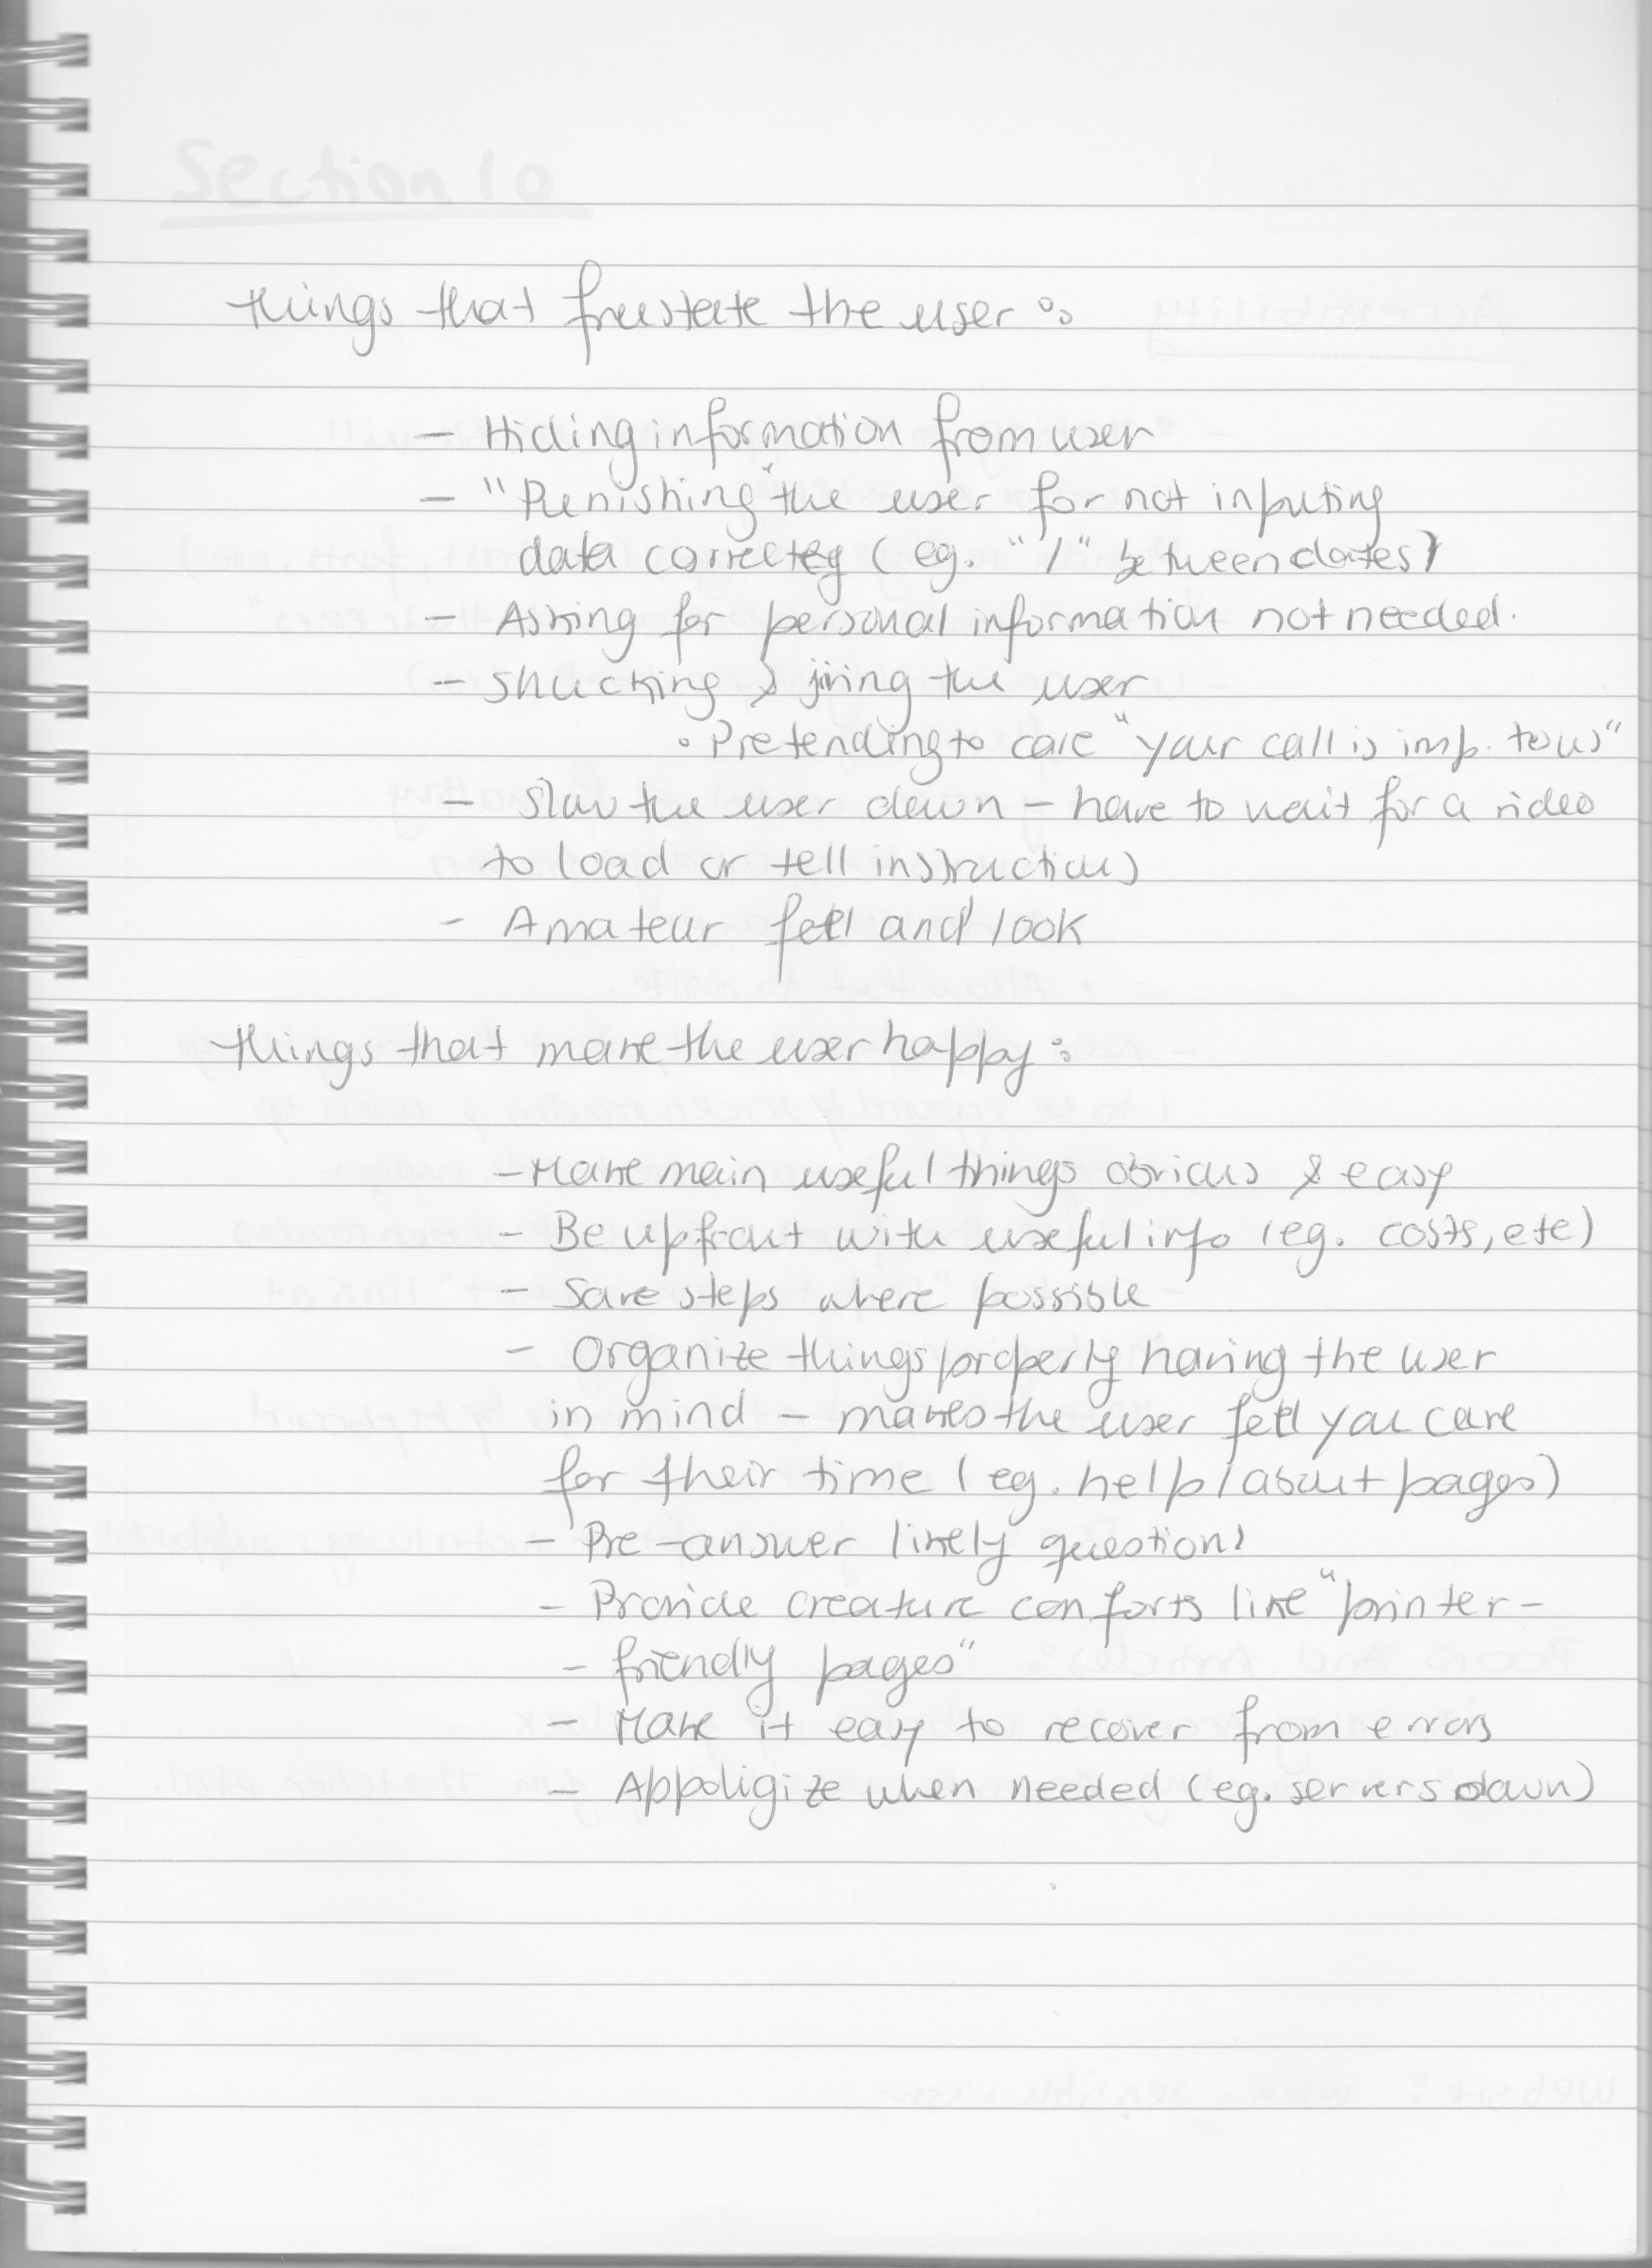 Section 10
things that frustate the user:
- Hiding information from user
- "Punishing" the user for not inputing
data correcteg (eg. "/" between dates)
- Asking for personal information not needed.
- Shucking & jiving the user
• Pretending to care "your call is imp. to us"
- Slow the user down - have to wait for a video
to load or tell instructions
- Amateur feel and look
things that make the user happy:
- Make main useful things obvious & easy
- Be upfront with useful info (eg. costs, etc)
- Save steps where possible
- Organize things properly having the user
in mind - makes the user feel you care
for their time (eg. help/about pages)
- Pre-answer likely questions
- Provide creature comforts like "printer-
- friendly pages"
- Make it easy to recover from errors
- Appoligize when needed (eg. servers down)